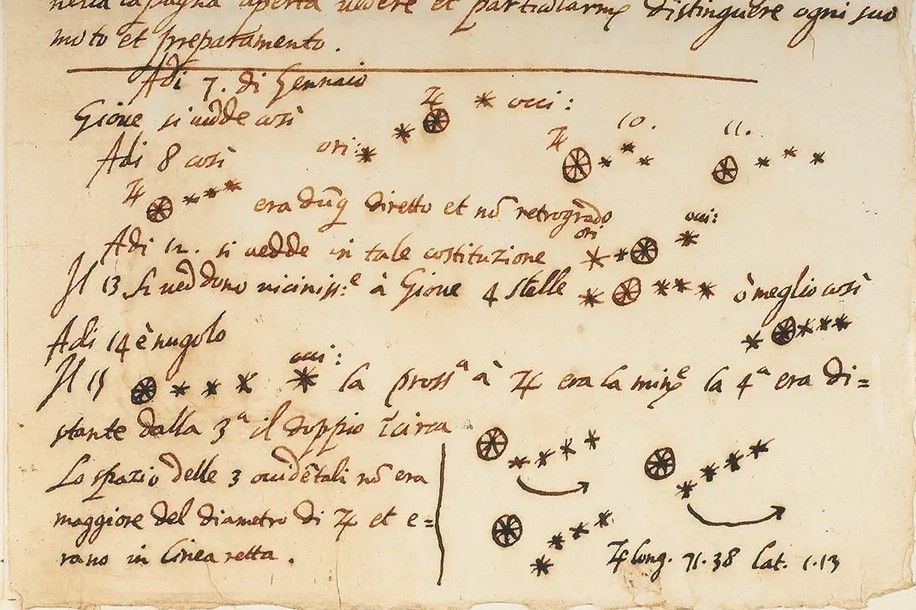 nella campagna aperta uedere et particolarm.e distinguere ogni suo
moto et preparamento.
Adi 7. di Gennaio
Gioue si uedde così ♃ occi:
ori:
Adi 8 così ♃ 10. 11.
♃
era dũq diretto et nõ retrogrado
Adi 12. si uedde in tale costituzione ori: occi:
Il 13 si ueddono uiciniss.e à Gioue 4 stelle ò meglio così
Adi 14 è nugolo
Il 15 occi: la pross.a à ♃ era la min.e la 4.a era di=
stante dalla 3.a il doppio circa
Lo spazio delle 3 occidẽtali nõ era
maggiore del diametro di ♃ et e=
rano in linea retta.
♃ long. 71.38 lat. 1.13